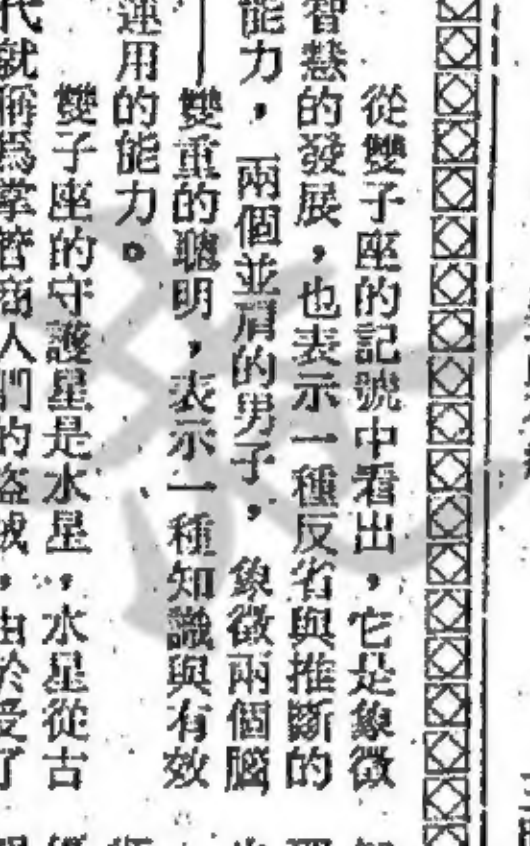 從雙子座的記號中看出，它是象徵
智慧的發展，也表示一種反省與推斷的
能力，兩個並肩的男子，象徵兩個腦
——雙重的聰明，表示一種知識與有效
運用的能力。
雙子座的守護星是水星，水星從古
代就稱爲掌管商人們的盜賊，由於受了